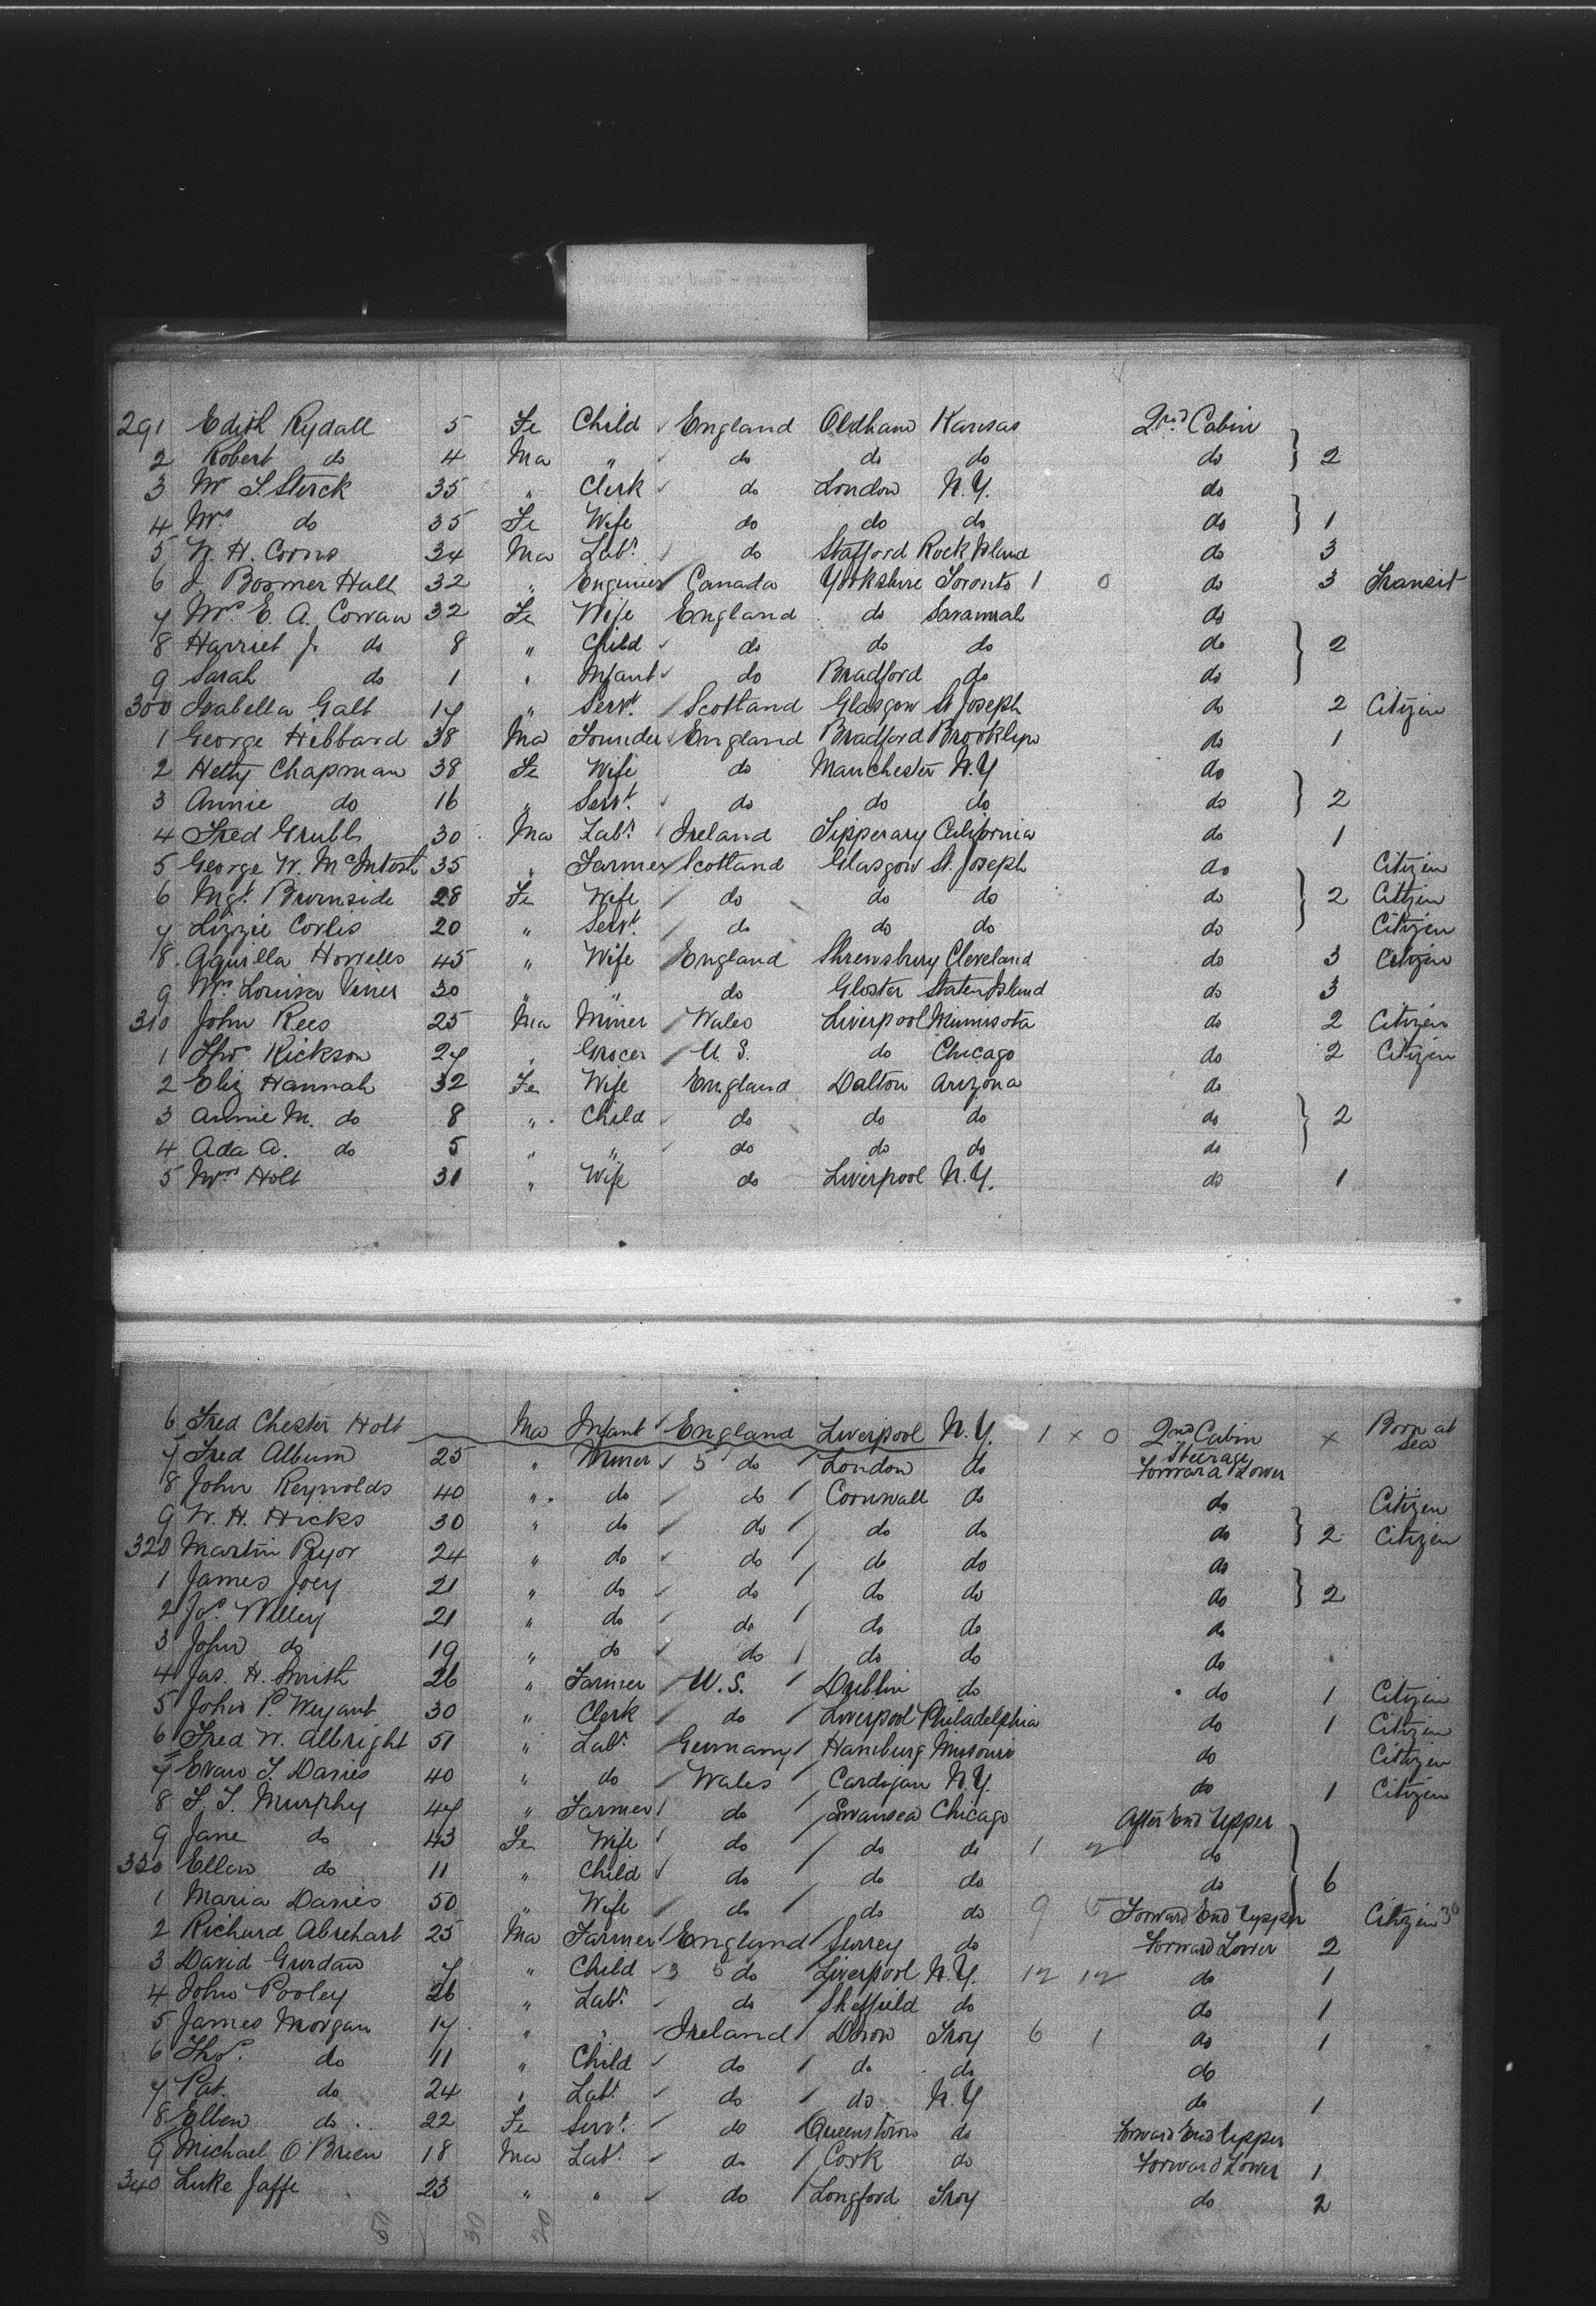 291 Edith Rydall 5 Fe Child England Oldham Kansas 2nd Cabin
2 Robert do 4 Ma " do do do do } 2
3 W S. Sterck 35 " Clerk do London N.Y. do
4 Mrs do 35 Fe Wife do do do do } 1
5 W. H. Corns 34 Ma Labr do Stafford Rock Island do 3
6 J. Bosmer Hall 32 " Engineer Canada Yorkshire Toronto 1 0 do 3 Transit
7 Mrs E. A. Cowan 32 Fe Wife England do Savannah do
8 Harriet J. do 8 " Child do do do do } 2
9 Sarah do 1 " Infant do Bradford do do
300 Isabella Galt 17 " Servt. Scotland Glasgow St Joseph do 2 Citizen
1 George Hibbard 38 Ma Founder England Bradford Brooklyn do 1
2 Hetty Chapman 38 Fe Wife do Manchester N.Y do
3 Annie do 16 " Servt. do do do do } 2
4 Fred Grubb 30 Ma Labr. Ireland Tipperary California do 1
5 George W. McIntosh 35 " Farmer Scotland Glasgow St. Joseph do Citizen
6 Mgt. Burnside 28 Fe Wife do do do do } 2 Citizen
7 Lizzie Corlis 20 " Servt. do do do do Citizen
8 Aquilla Howells 45 " Wife England Shrewsbury Cleveland do 3 Citizen
9 Mrs Louisa Viner 30 " " do Gloster Staten Island do 3
310 John Rees 25 Ma Miner Wales Liverpool Minnisota do 2 Citizen
1 Thos. Rickson 27 " Grocer U.S. do Chicago do 2 Citizen
2 Eliz Hannah 32 Fe Wife England Dalton Arizona do
3 Annie M. do 8 " Child do do do do } 2
4 Ada A. do 5 " " do do do do
5 Mrs Holt 31 " Wife do Liverpool N.Y. do 1
6 Fred Chester Holt Ma Infant England Liverpool N.Y. 1 x 0 2nd Cabin x Born at sea
7 Fred Album 25 " Miner 5 do London do Steerage Forward Lower
8 John Reynolds 40 " do do Cornwall do do Citizen
9 W. H. Hicks 30 " do do do do do } 2 Citizen
320 Martin Pryor 24 " do do do do do
1 James Joey 21 " do do do do do } 2
2 Jos. Willey 21 " do do do do do
3 John do 19 " do do do do do
4 Jas. H. Smith 26 " Farmer U.S. Dublin do do 1 Citizen
5 John P. Weyant 30 " Clerk do Liverpool Philadelphia do 1 Citizen
6 Fred W. Albright 51 " Labr. Germany Hamburg Missouri do Citizen
7 Evan J. Davies 40 " do Wales Cardigan N.Y. do 1 Citizen
8 T. J. Murphy 47 " Farmer do Swansea Chicago After End Upper
9 Jane do 43 Fe Wife do do do 1 2 do
330 Ellen do 11 " Child do do do do } 6
1 Maria Davies 50 " Wife do do do 9 5 Forward End Upper Citizen 30
2 Richard Abrehart 25 Ma Farmer England Surrey do Forward Lower 2
3 David Gurdan 7 " Child 3 5 do Liverpool N.Y. 12 12 do 1
4 John Pooley 26 " Labr. do Sheffield do do 1
5 James Morgan 17 " " Ireland Down Troy 6 1 do 1
6 Thos. do 11 " Child do do do do
7 Pat. do 24 " Labr. do do N.Y do 1
8 Ellen do 22 Fe Servt. do Queenstown do Forward End Upper
9 Michael O'Brien 18 Ma Labr. do Cork do Forward Lower 1
340 Luke Jaffe 23 " " do Longford Troy do 2
30